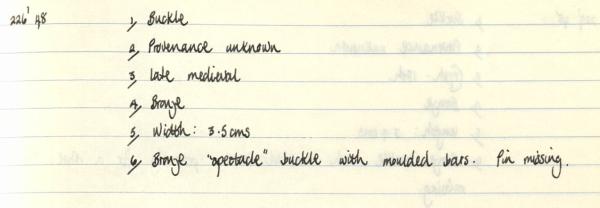 226' 48 1, Buckle
2, Provenance unknown
3, Late medieval
4, Bronze
5, Width: 3.5cms
6, Bronze "spectacle" buckle with moulded bars. Pin missing.